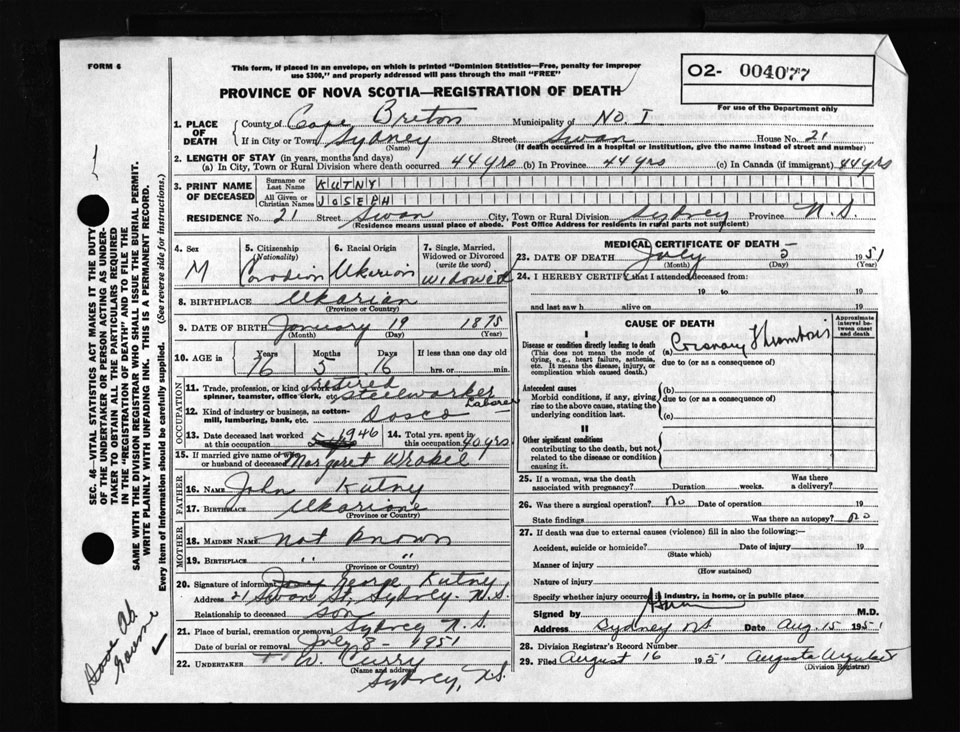 FORM 6
This form, if placed in an envelope, on which is printed "Dominion Statistics—Free, penalty for improper
use $300," and properly addressed will pass through the mail "FREE"
O2- 004077
For use of the Department only
PROVINCE OF NOVA SCOTIA—REGISTRATION OF DEATH
1. PLACE OF DEATH
County of Cape Breton Municipality of No. I
If in City or Town Sydney Street Swan House No. 21
(Name) (If death occurred in a hospital or institution, give the name instead of street and number)
2. LENGTH OF STAY (in years, months and days)
(a) In City, Town or Rural Division where death occurred 44 yrs (b) In Province 44 yrs (c) In Canada (if immigrant) 44 yrs
3. PRINT NAME OF DECEASED
Surname or Last Name KUTNY
All Given or Christian Names JOSEPH
RESIDENCE No. 21 Street Swan City, Town or Rural Division Sydney Province N.S.
(Residence means usual place of abode. Post Office Address for residents in rural parts not sufficient)
4. Sex M
5. Citizenship (Nationality) Canadian
6. Racial Origin Ukarion
7. Single, Married, Widowed or Divorced (write the word) Widowed
8. BIRTHPLACE Ukarian
(Province or Country)
9. DATE OF BIRTH January 19 1875
(Month) (Day) (Year)
10. AGE in Years Months Days If less than one day old
76 5 16 hrs. or min.
OCCUPATION
11. Trade, profession, or kind of work as spinner, teamster, office clerk, etc. retired Steelworker Laborer
12. Kind of industry or business, as cotton-mill, lumbering, bank, etc. Dosco
13. Date deceased last worked at this occupation 1946
14. Total yrs. spent in this occupation 40 yrs.
15. If married give name of wife or husband of deceased Margaret Wrobel
FATHER
16. NAME John Kutny
17. BIRTHPLACE Ukarione
(Province or Country)
MOTHER
18. MAIDEN NAME Not Known
19. BIRTHPLACE " "
(Province or Country)
20. Signature of informant George Kutny
Address 21 Swan St. Sydney. N.S.
Relationship to deceased son
21. Place of burial, cremation or removal Sydney N.S.
Date of burial or removal July 8 - 1951
22. UNDERTAKER W. Curry
(Name and address)
Sydney, N.S.
MEDICAL CERTIFICATE OF DEATH
23. DATE OF DEATH July 5 1951
(Month) (Day) (Year)
24. I HEREBY CERTIFY that I attended deceased from:
19 to 19
and last saw h alive on 19
CAUSE OF DEATH
Approximate interval between onset and death
I
Disease or condition directly leading to death
(This does not mean the mode of dying, e.g., heart failure, asthenia, etc. It means the disease, injury, or complication which caused death.)
(a) Coronary Thrombosis
due to (or as a consequence of)
Antecedent causes
Morbid conditions, if any, giving rise to the above cause, stating the underlying condition last.
(b)
due to (or as a consequence of)
(c)
II
Other significant conditions
contributing to the death, but not related to the disease or condition causing it.
25. If a woman, was the death associated with pregnancy? Duration weeks. Was there a delivery?
26. Was there a surgical operation? No Date of operation 19
State findings Was there an autopsy? No
27. If death was due to external causes (violence) fill in also the following:
Accident, suicide or homicide? Date of injury 19
(State which)
Manner of injury
(How sustained)
Nature of injury
Specify whether injury occurred in industry, in home, or in public place
Signed by M.D.
Address Sydney NS Date Aug. 15 1951
28. Division Registrar's Record Number
29. Filed August 16 1951
(Division Registrar)
SEC. 46—VITAL STATISTICS ACT MAKES IT THE DUTY
OF THE UNDERTAKER OR PERSON ACTING AS UNDER-
TAKER TO OBTAIN ALL THE PARTICULARS REQUIRED
IN THE "REGISTRATION OF DEATH" AND TO FILE THE
SAME WITH THE DIVISION REGISTRAR WHO SHALL ISSUE THE BURIAL PERMIT.
WRITE PLAINLY WITH UNFADING INK. THIS IS A PERMANENT RECORD.
Every item of Information should be carefully supplied. (See reverse side for instructions.)